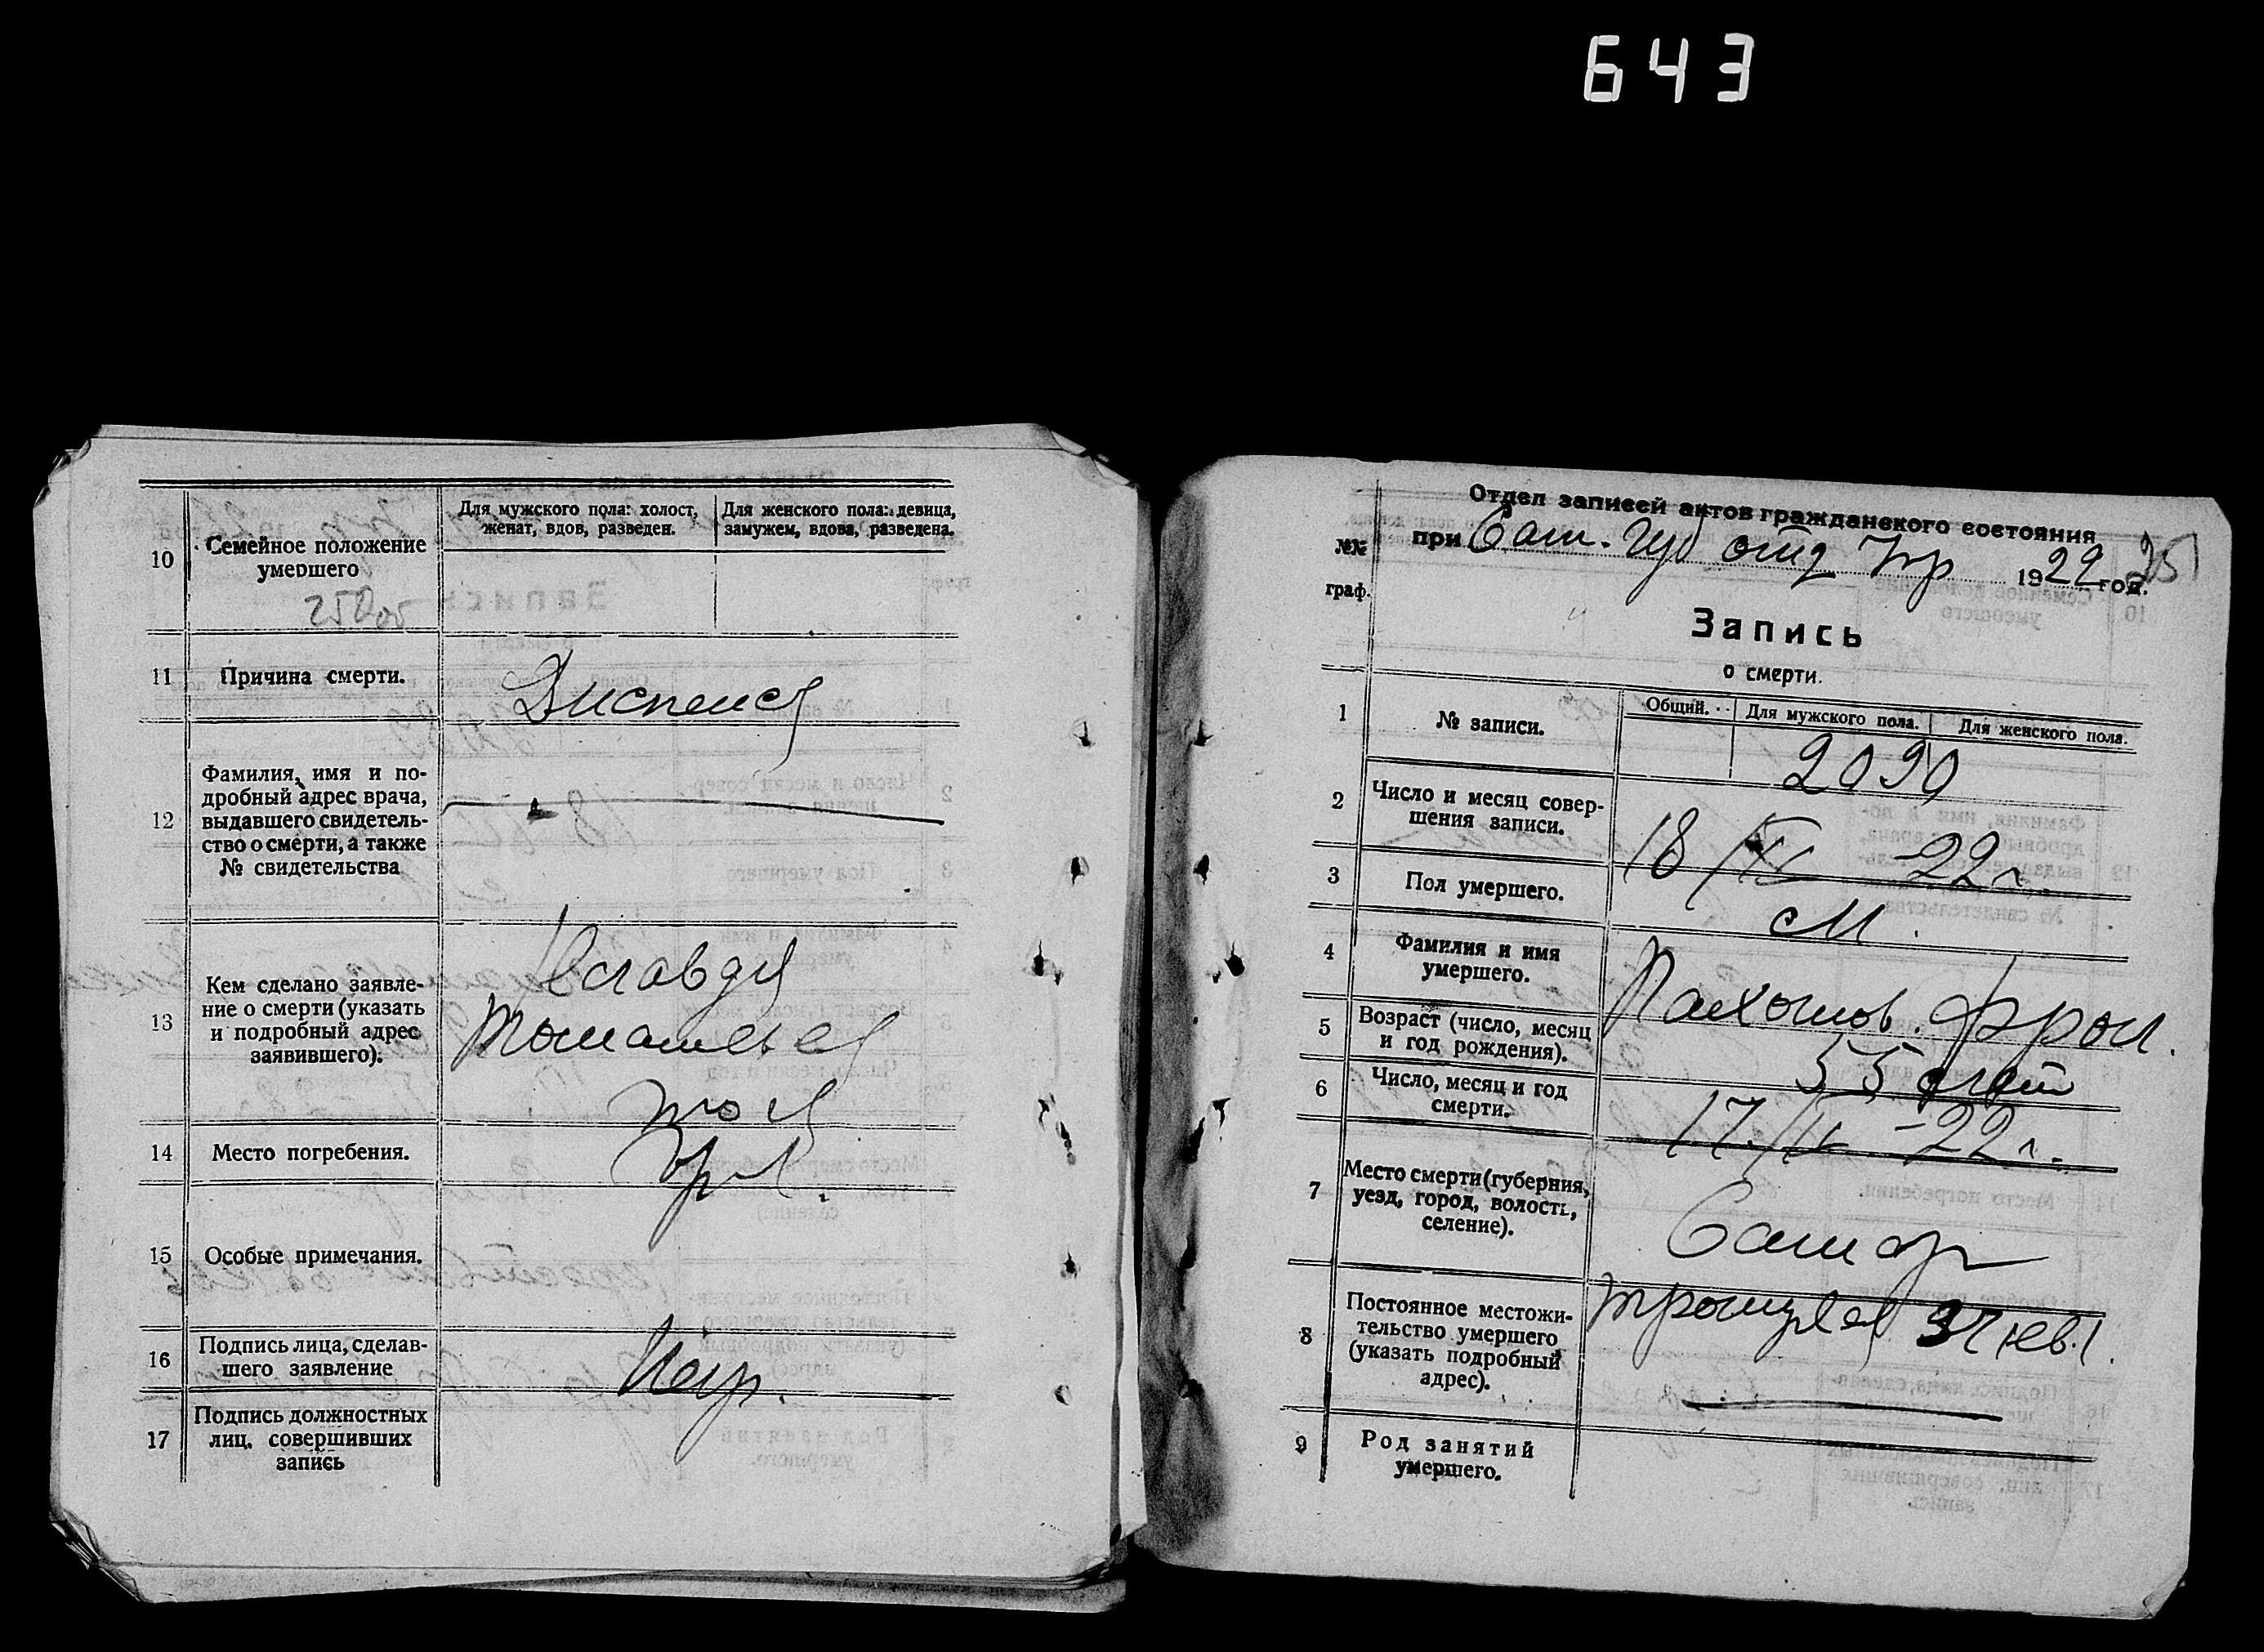 643
10
Семейное положение
умершего
Для мужского пола: холост,
женат, вдов, разведен.
Для женского пола: девица,
замужем, вдова, разведена.
11
Причина смерти.
12
Фамилия, имя и по-
дробный адрес врача,
выдавшего свидетель-
ство о смерти, а также
№ свидетельства
13
Кем сделано заявле-
ние о смерти (указать
и подробный адрес
заявившего).
14
Место погребения.
15
Особые примечания.
16
Подпись лица, сделав-
шего заявление
17
Подпись должностных
лиц, совершивших
запись
Отдел записей актов гражданского состояния
№№
граф.
при Сам. Губ отд Упр 1922 год.
Запись
о смерти.
1
№ записи.
Общий.
Для мужского пола.
Для женского пола.
2090
2
Число и месяц совер-
шения записи.
18/IV -22 г.
3
Пол умершего.
М.
4
Фамилия и имя
умершего.
Пахомов. Фрол.
5
Возраст (число, месяц
и год рождения).
55 лет
6
Число, месяц и год
смерти.
17/IV -22 г.
7
Место смерти (губерния,
уезд, город, волость,
селение).
Самар
8
Постоянное местожи-
тельство умершего
(указать подробный
адрес).
9
Род занятий
умершего.